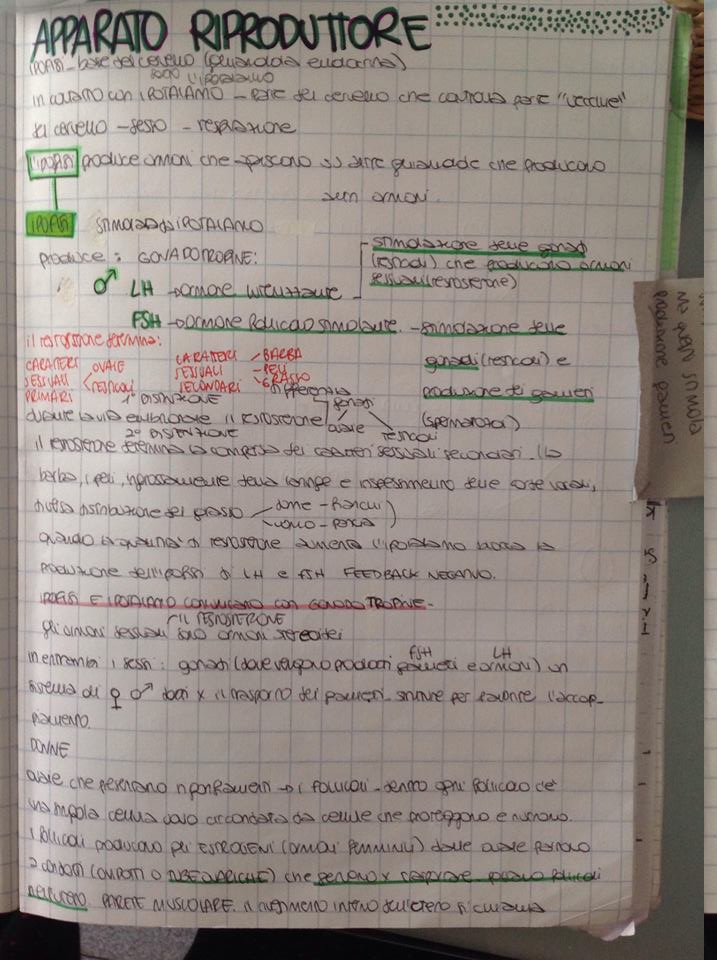 APPARATO RIPRODUTTORE
IPOFISI - base del cervello (ghiandola endocrina)
sotto l'IPOTALAMO
in contatto con IPOTALAMO - parte del cervello che controlla parte "vecchie"
del cervello - sesso - respirazione
L'IPOFISI produce ormoni che agiscono su altre ghiandole che producono
altri ormoni.
IPOFISI stimolata da IPOTALAMO
produce: GONADOTROPINE:
♂ LH → ormone luteinizzante - stimolazione delle gonadi
(testicoli) che producono ormoni
sessuali (testosterone)
FSH → ormone follicolo stimolante - stimolazione delle
gonadi (testicoli) e
produzione dei gameti
(spermatozoi)
il testosterone determina:
CARATTERI SESSUALI PRIMARI OVAIE TESTICOLI
CARATTERI SESSUALI SECONDARI BARBA PELI GRASSO
1° DISTINZIONE
durante la vita embrionale il testosterone differenzia gonadi ovaie testicoli
2° DISTINZIONE
il testosterone determina la comparsa dei caratteri sessuali secondari. (la
barba, i peli, ingrossamento della laringe e inspessimento delle corde vocali,
diversa distribuzione del grasso donne - fianchi
uomo - pancia)
quando la quantità di testosterone aumenta l'ipotalamo blocca la
produzione dell'ipofisi di LH e FSH FEEDBACK NEGATIVO.
IPOFISI E IPOTALAMO COMUNICANO CON GONADOTROPINE -
IL TESTOSTERONE
gli ormoni sessuali sono ormoni steroidei
FSH LH
in entrambi i sessi: gonadi (dove vengono prodotti gameti e ormoni) un
sistema di ♀ ♂ dotti x il trasporto dei gameti - strutture per favorire l'accop-
piamento.
DONNE
ovaie che generano i gameti → i follicoli - dentro ogni follicolo c'è
una singola cellula uovo circondata da cellule che proteggono e nutrono.
I follicoli producono gli ESTROGENI (ORMONI FEMMINILI) dalle ovaie partono
2 condotti (OVIDOTTI O TUBE UTERINE) che
NELL'UTERO. PARETE MUSCOLARE. il rivestimento interno dell'utero si chiama
stimola
produzione gameti